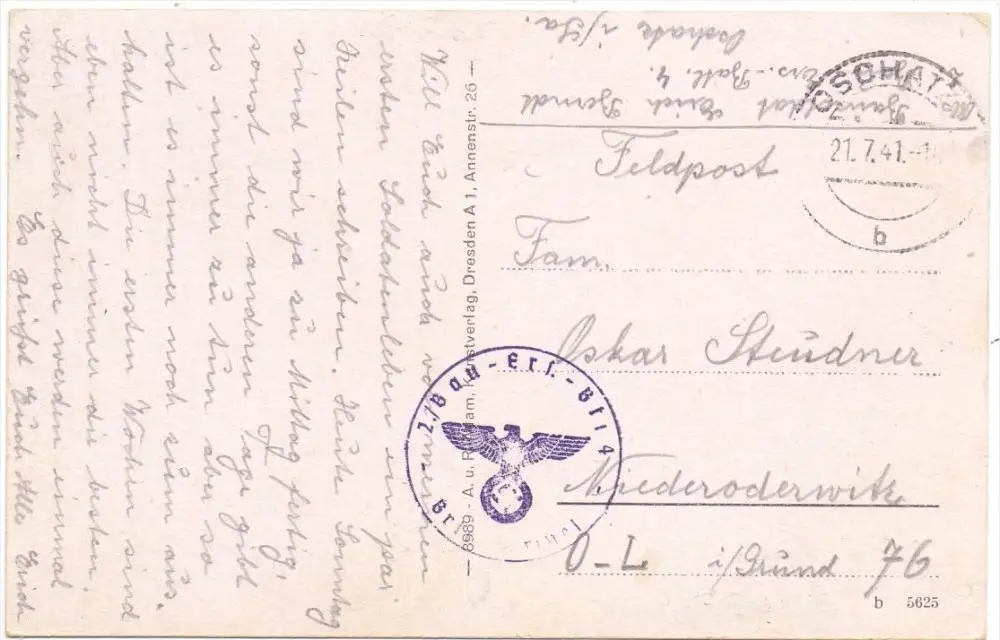 Will Euch auch von meinen
ersten Soldatenleben ein paar
Zeilen schreiben. Heute Sonntag
sind wir ja zu Mittag fertig,
sonst die anderen Tage gibt
es immer zu tun aber so
ist es immer noch zum aus
halten. Die ersten Wochen sind
eben nicht immer die besten.
Aber auch diese werden einmal
vergehn. Es grüßt Euch Alle Erich
— 8989 - A. u. R. Kunstverlag, Dresden A 1, Annenstr. 26 —
Bausoldat Erich Berndt
Ers.-Batl. 4.
Oschatz i/Sa.
OSCHATZ
21.7.41.
b
Feldpost
Fam.
Oskar Steudner
Niederoderwitz
O-L i/Grund 76
2./Bau-Ers.-Btl 4
b 5625